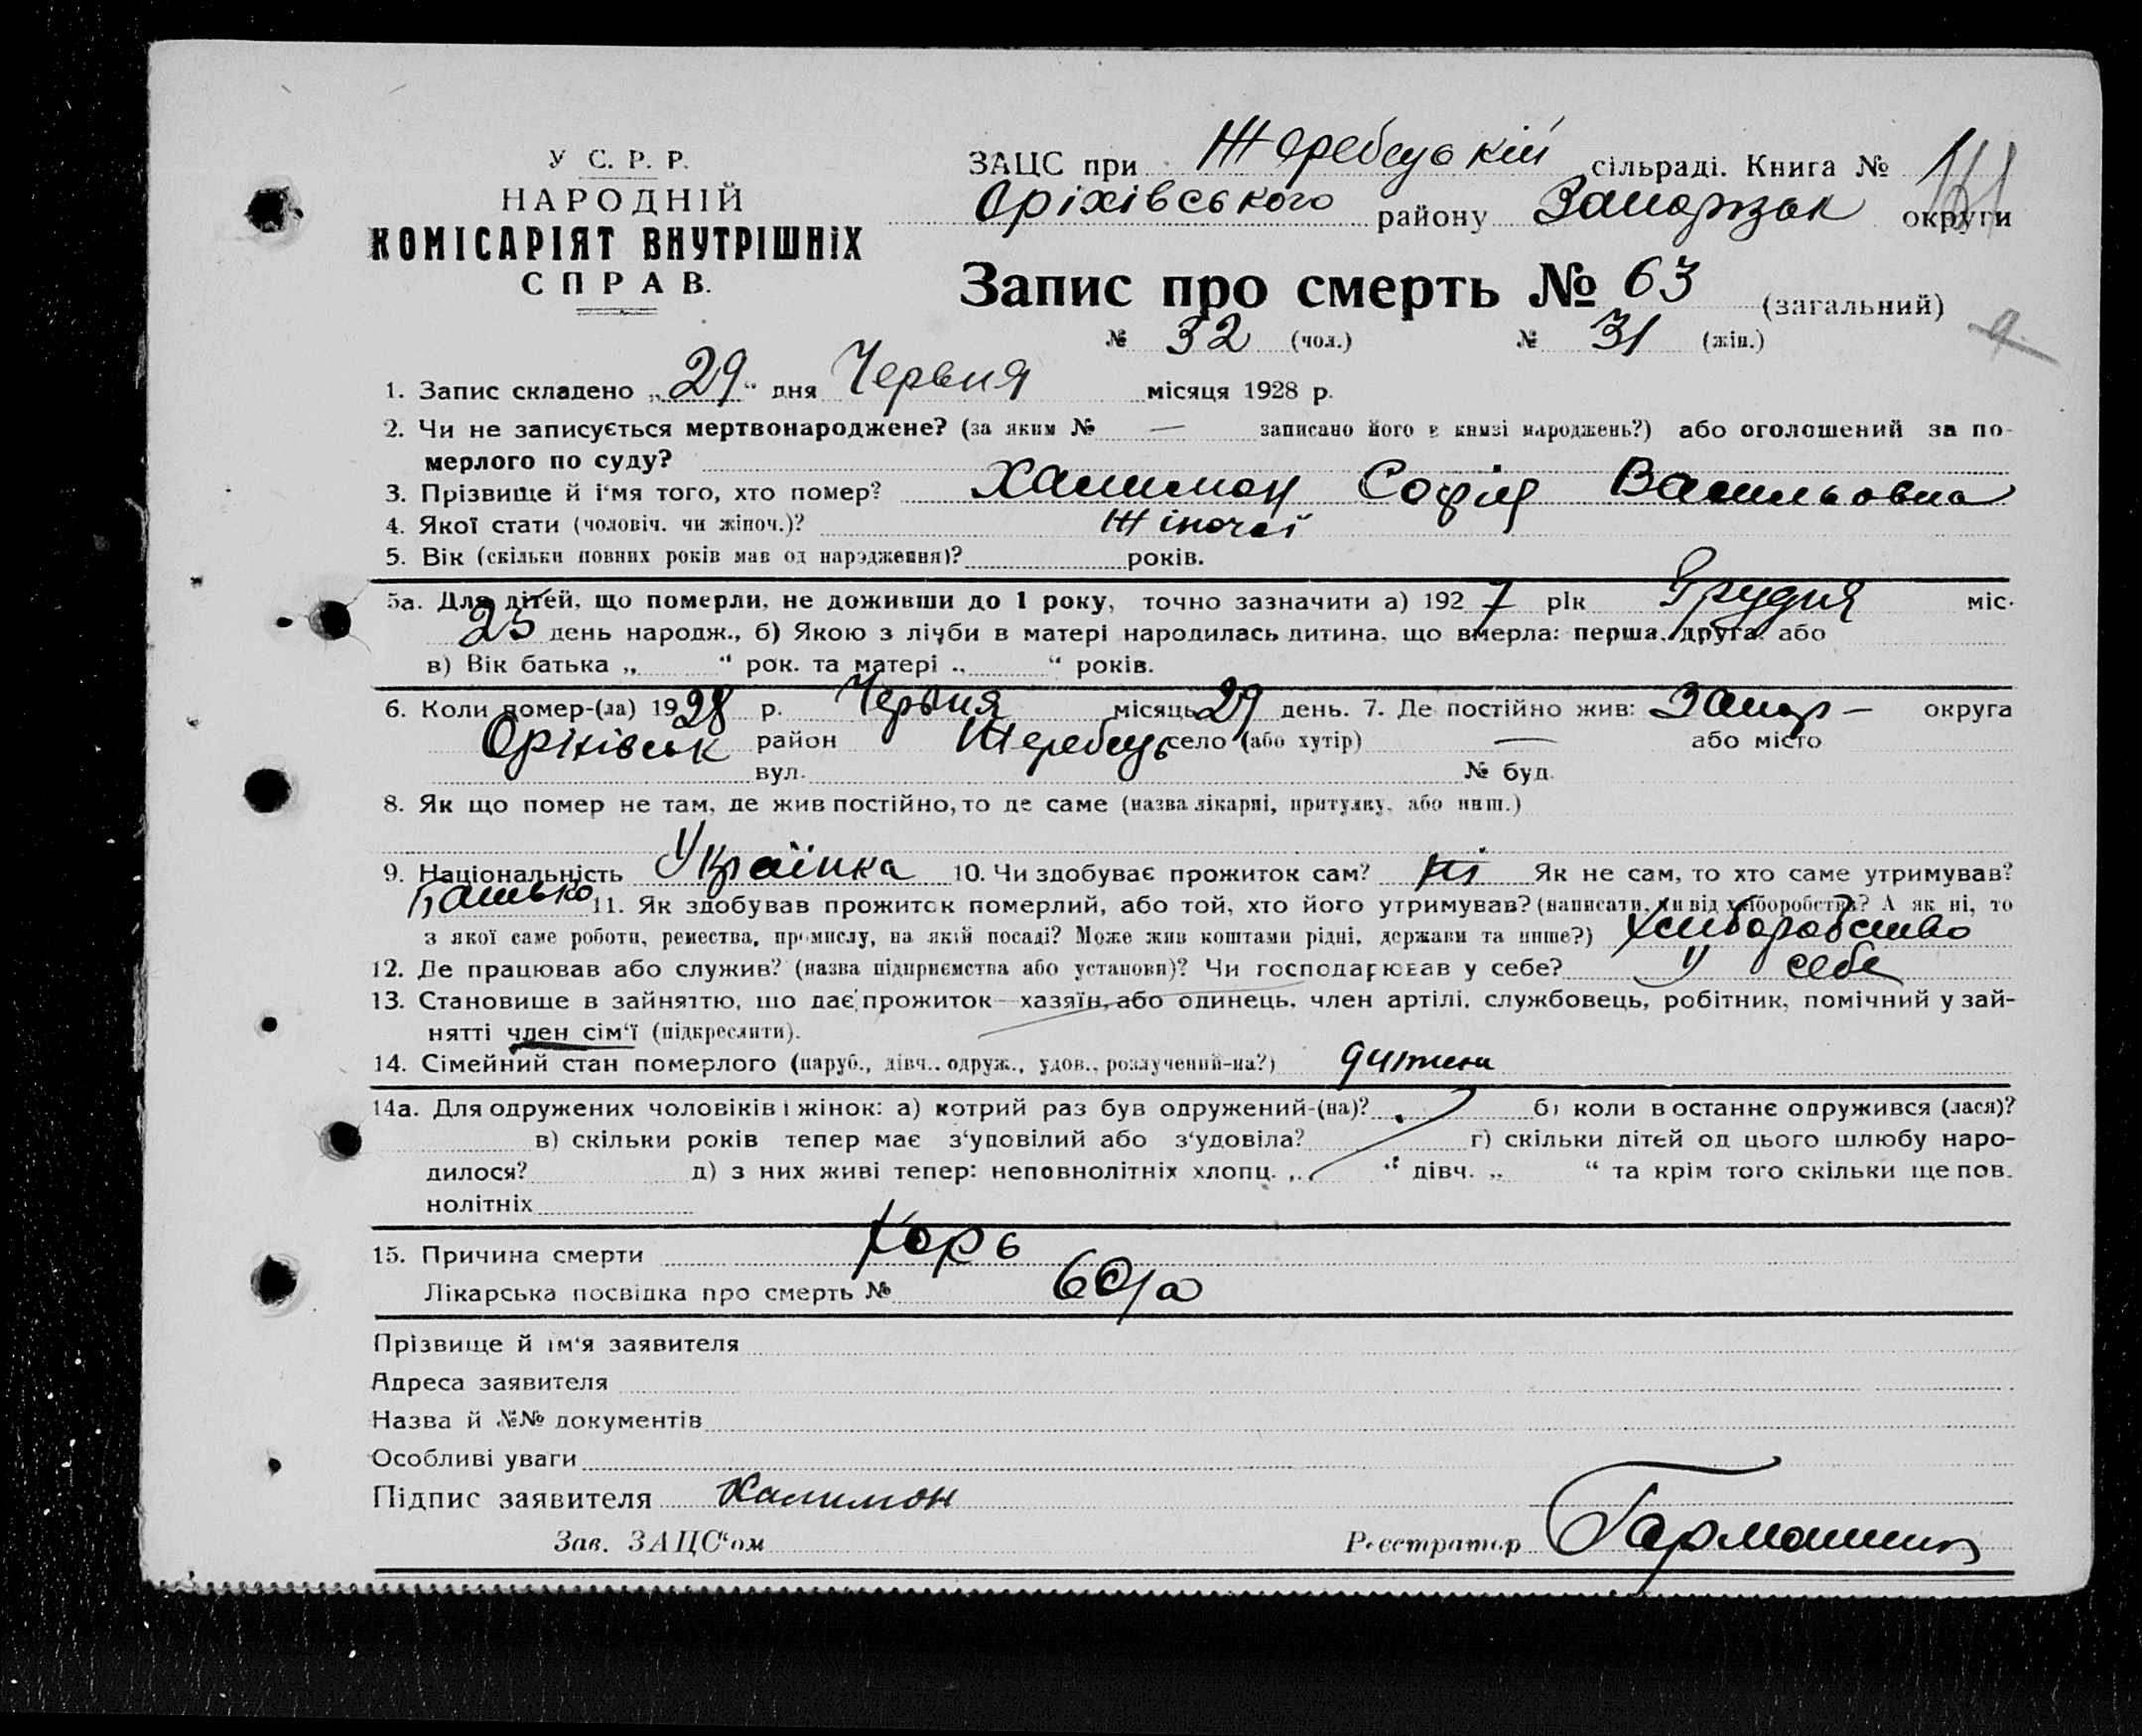 У С. Р. Р.
НАРОДНІЙ
КОМІСАРІЯТ ВНУТРІШНІХ
СПРАВ.
ЗАЦС при Жеребецькій сільраді. Книга №
Оріхівського району Запоріз округи
Запис про смерть № 63 (загальний)
№ 32 (чол.) № 31 (жін.)
1. Запис складено „29“ дня Червня місяця 1928 р.
2. Чи не записується мертвонароджене? (за яким № — записано його в книзі народжень?) або оголошений за по-
мерлого по суду?
3. Прізвище й і'мя того, хто помер? Халимон Софія Васильовна
4. Якої стати (чоловіч. чи жіноч.)? Жіночої
5. Вік (скільки повних років мав од народження)? років.
5а. Для дітей, що померли, не доживши до 1 року, точно зазначити а) 1927 рік Грудня міс.
25 день народж., б) Якою з лічби в матері народилась дитина, що вмерла: перша, друга або
в) Вік батька „ “ рок. та матері „ “ років.
6. Коли помер-(ла) 1928 р. Червня місяць 29 день. 7. Де постійно жив: Запор — округа
Оріхівськ район Жеребець село (або хутір) — або місто
вул. № буд.
8. Як що помер не там, де жив постійно, то де саме (назва лікарні, притулку, або инш.)
9. Національність Українка 10. Чи здобуває прожиток сам? Ні Як не сам, то хто саме утримував?
Батько 11. Як здобував прожиток померлий, або той, хто його утримував? (написати, чи від хліборобства? А як ні, то
з якої саме роботи, ремества, промислу, на якій посаді? Може жив коштами рідні, держави та инше?) Хліборобство
12. Де працював або служив? (назва підприємства або установи)? Чи господарював у себе? У себе
13. Становище в зайняттю, що дає прожиток—хазяїн, або одинець, член артілі, службовець, робітник, помічний у зай-
нятті член сім'ї (підкреслити).
14. Сімейний стан померлого (паруб., дівч., одруж., удов., розлучений-на?) дитина
14а. Для одружених чоловіків і жінок: а) котрий раз був одружений-(на)? б) коли в останнє одружився (лася)?
в) скільки років тепер має з'удовілий або з'удовіла? г) скільки дітей од цього шлюбу наро-
дилося? д) з них живі тепер: неповнолітніх хлопц. „ “ дівч. „ “ та крім того скільки ще пов.
нолітніх
15. Причина смерти Корь
Лікарська посвідка про смерть № 60/а
Прізвище й ім'я заявителя
Адреса заявителя
Назва й №№ документів
Особливі уваги
Підпис заявителя Халимон
Зав. ЗАЦС'ом Реєстратор